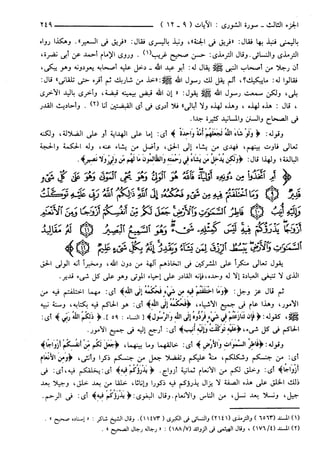 الجزء الثالث ـ سورة الشورى : الآيات ( ٩ ـ ١٢ ) ٢٤٩
باليمنى فنبذ بها فقال: «فريق في الجنة»، ونبذ باليسرى فقال: «فريق في السعير». وهكذا رواه
الترمذي والنسائي. وقال الترمذي: حسن صحيح غريب(١). وروى الإمام أحمد عن أبي نضرة،
أن رجلا من أصحاب النبي ﷺ يقال له: أبو عبد الله ـ دخل عليه أصحابه يعودونه وهو يبكي،
فقالوا له: مايبكيك؟، ألم يقل لك رسول الله ﷺ: «خذ من شاربك ثم أقره حتى تلقاني» قال:
بلى، ولكن سمعت رسول الله ﷺ يقول: « إن الله قبض بيمينه قبضة، وأخرى باليد الأخرى
، قال : هذه لهذه ، وهذه لهذه ولا أبالي» فلا أدرى في أي القبضتين أنا (٢) . وأحاديث القدر
في الصحاح والسنن والمسانيد كثيرة جدا.
وقوله: ﴿ ولو شاء الله لجعلهم أمة واحدة ﴾ أي: إما على الهداية أو على الضلالة، ولكنه
تعالى فاوت بينهم، فهدى من يشاء إلى الحق، وأضل من يشاء عنه، وله الحكمة والحجة
البالغة؛ ولهذا قال: ﴿ولكن يدخل من يشاء في رحمته والظالمون ما لهم من ولي ولا نصير﴾.
﴿ أم اتخذوا من دونه أولياء فالله هو الولي وهو يحي الموتى وهو على كل شيء قدير
وما اختلفتم فيه من شيء فحكمه إلى الله ذلكم الله ربي عليه توكلت
وإليه أنيب فاطر السموات والأرض جعل لكم من أنفسكم أزواجا
ومن الأنعام أزواجا يذرؤكم فيه ليس كمثله شيء وهو السميع البصير
له مقاليد السموات والأرض يبسط الرزق لمن يشاء ويقدر إنه بكل شيء عليم ﴾
يقول تعالى منكرا على المشركين في اتخاذهم آلهة من دون الله، ومخبرا أنه الولي الحق
الذي لا تنبغي العبادة إلا له وحده، فإنه القادر على إحياء الموتى وهو على كل شيء قدير.
ثم قال عز وجل: ﴿وما اختلفتم فيه من شيء فحكمه إلى الله﴾ أي: مهما اختلفتم فيه من
الأمور، وهذا عام في جميع الأشياء، ﴿فحكمه إلى الله﴾ أي: هو الحاكم فيه بكتابه، وسنة نبيه
ﷺ، كقوله: ﴿ فإن تنازعتم في شيء فردوه إلى الله والرسول﴾ [ النساء : ٥٩ ]. ﴿ ذلكم الله ربي ﴾ أي:
الحاكم في كل شيء، ﴿عليه توكلت وإليه أنيب﴾ أي: أرجع إليه في جميع الأمور.
وقوله: ﴿فاطر السموات والأرض ﴾ أي: خالقهما وما بينهما، ﴿ جعل لكم من أنفسكم أزواجا﴾
أي: من جنسكم وشكلكم، منة عليكم وتفضلا جعل من جنسكم ذكرا وأنثى، ﴿ومن الأنعام
أزواجا﴾ أي: وخلق لكم من الأنعام ثمانية أزواج. ﴿ يذرؤكم فيه﴾، أي: يخلقكم فيه، أي: في
ذلك الخلق على هذه الصفة لا يزال يذرؤكم فيه ذكورا وإناثا، خلقا من بعد خلق، وجيلا بعد
جيل، ونسلا بعد نسل، من الناس والأنعام. وقال البغوي: ﴿يذرؤكم فيه﴾ أي: في الرحم.
(١) المسند (٦٥٦٣) والترمذي (٢١٤١) والنسائي في الكبرى (١١٤٧٣). وقال الشيخ شاكر : « إسناده صحيح » .
(٢) المسند (١٧٦/٤) ، وقال الهيثمي في الزوائد (١٨٨/٧): « رجاله رجال الصحيح » .